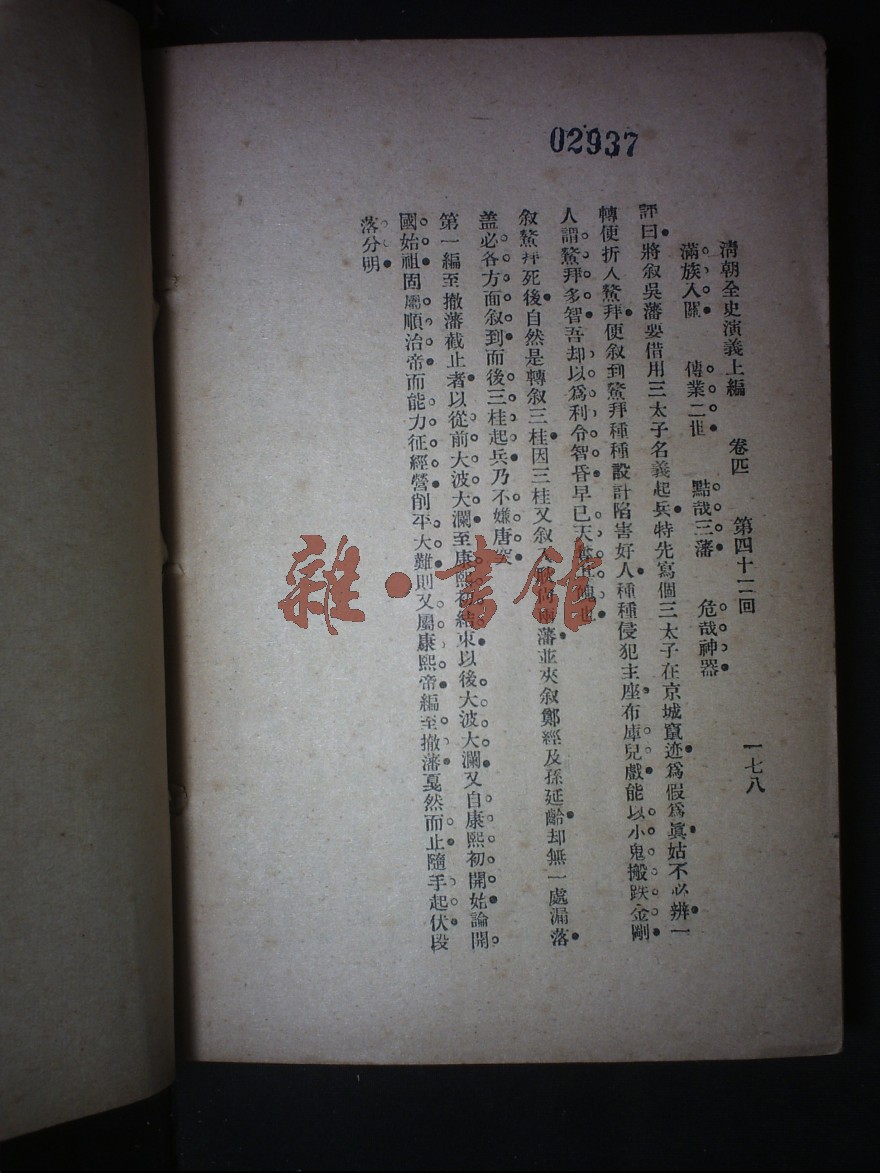 02937
清朝全史演義上編 卷四 第四十二回 一七八
滿族入關 傳業二世 點哉三藩 危哉神器
評曰將叙吳藩要借用三太子名義起兵特先寫個三太子在京城竄迹爲假爲眞姑不必辨一
轉便折入鰲拜便叙到鰲拜種種設計陷害好人種種侵犯主座布庫兒戲能以小鬼搬跌金剛
人謂鰲拜多智吾却以爲利令智昏早已天奪其魄也
叙鰲拜死後自然是轉叙三桂因三桂又叙入耿尚兩藩並夾叙鄭經及孫延齡却無一處漏落
盖必各方面叙到而後三桂起兵乃不嫌唐突
第一編至撤藩截止者以從前大波大瀾至康熙初結束以後大波大瀾又自康熙初開始論開
國始祖固屬順治帝而能力征經營削平大難則又屬康熙帝編至撤藩戛然而止隨手起伏段
落分明
雜·書館